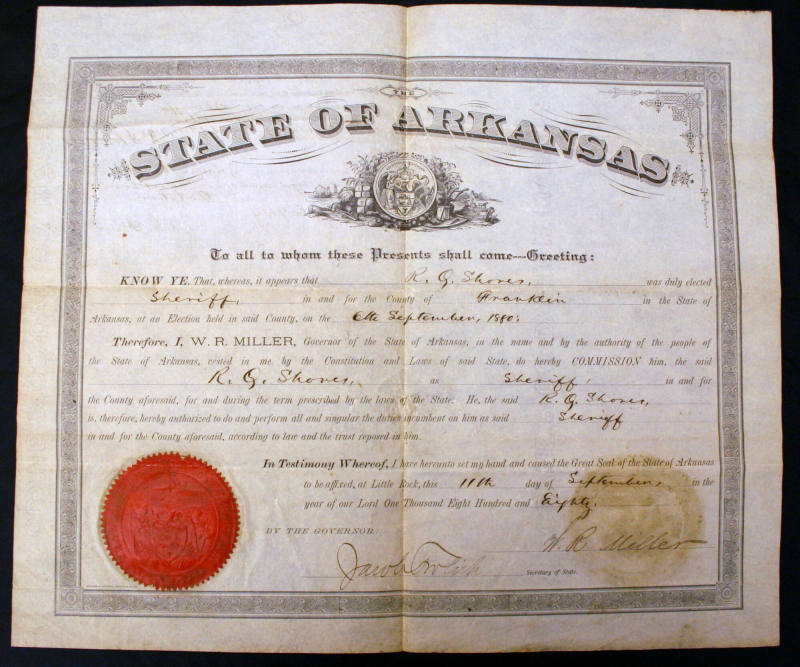 THE
STATE OF ARKANSAS
To all to whom these Presents shall come---Greeting:
KNOW YE, That, whereas, it appears that R. G. Shores, was duly elected
Sheriff, in and for the County of Franklin in the State of
Arkansas, at an Election held in said County, on the 6th September, 1880:
Therefore, I, W. R. MILLER, Governor of the State of Arkansas, in the name and by the authority of the people of
the State of Arkansas, vested in me by the Constitution and Laws of said State, do hereby COMMISSION him, the said
R. G. Shores, as Sheriff, in and for
the County aforesaid, for and during the term prescribed by the laws of the State. He, the said R. G. Shores,
is, therefore, hereby authorized to do and perform all and singular the duties incumbent on him as said Sheriff
in and for the County aforesaid, according to law and the trust reposed in him.
In Testimony Whereof, I have hereunto set my hand and caused the Great Seal of the State of Arkansas
to be affixed, at Little Rock, this 11th day of September, in the
year of our Lord One Thousand Eight Hundred and Eighty.
BY THE GOVERNOR:
W. R. Miller
Jacob Frolich
Secretary of State.